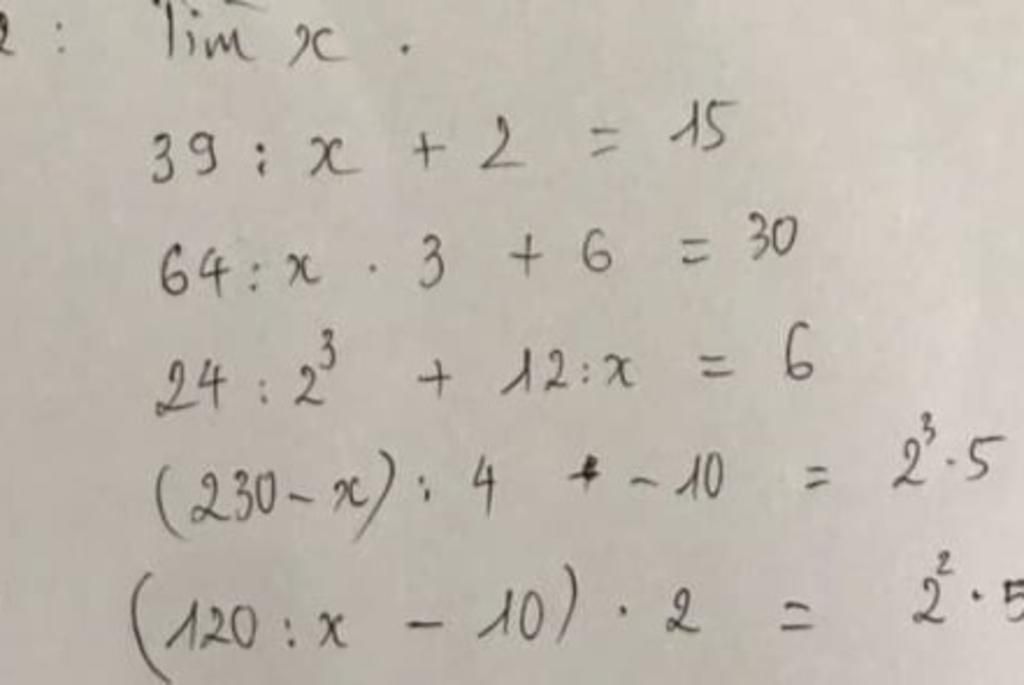 2 : Tìm x .
39 : x + 2 = 15
64 : x . 3 + 6 = 30
24 : 2³ + 12 : x = 6
(230 - x) : 4 - 10 = 2³ . 5
(120 : x - 10) . 2 = 2² . 5